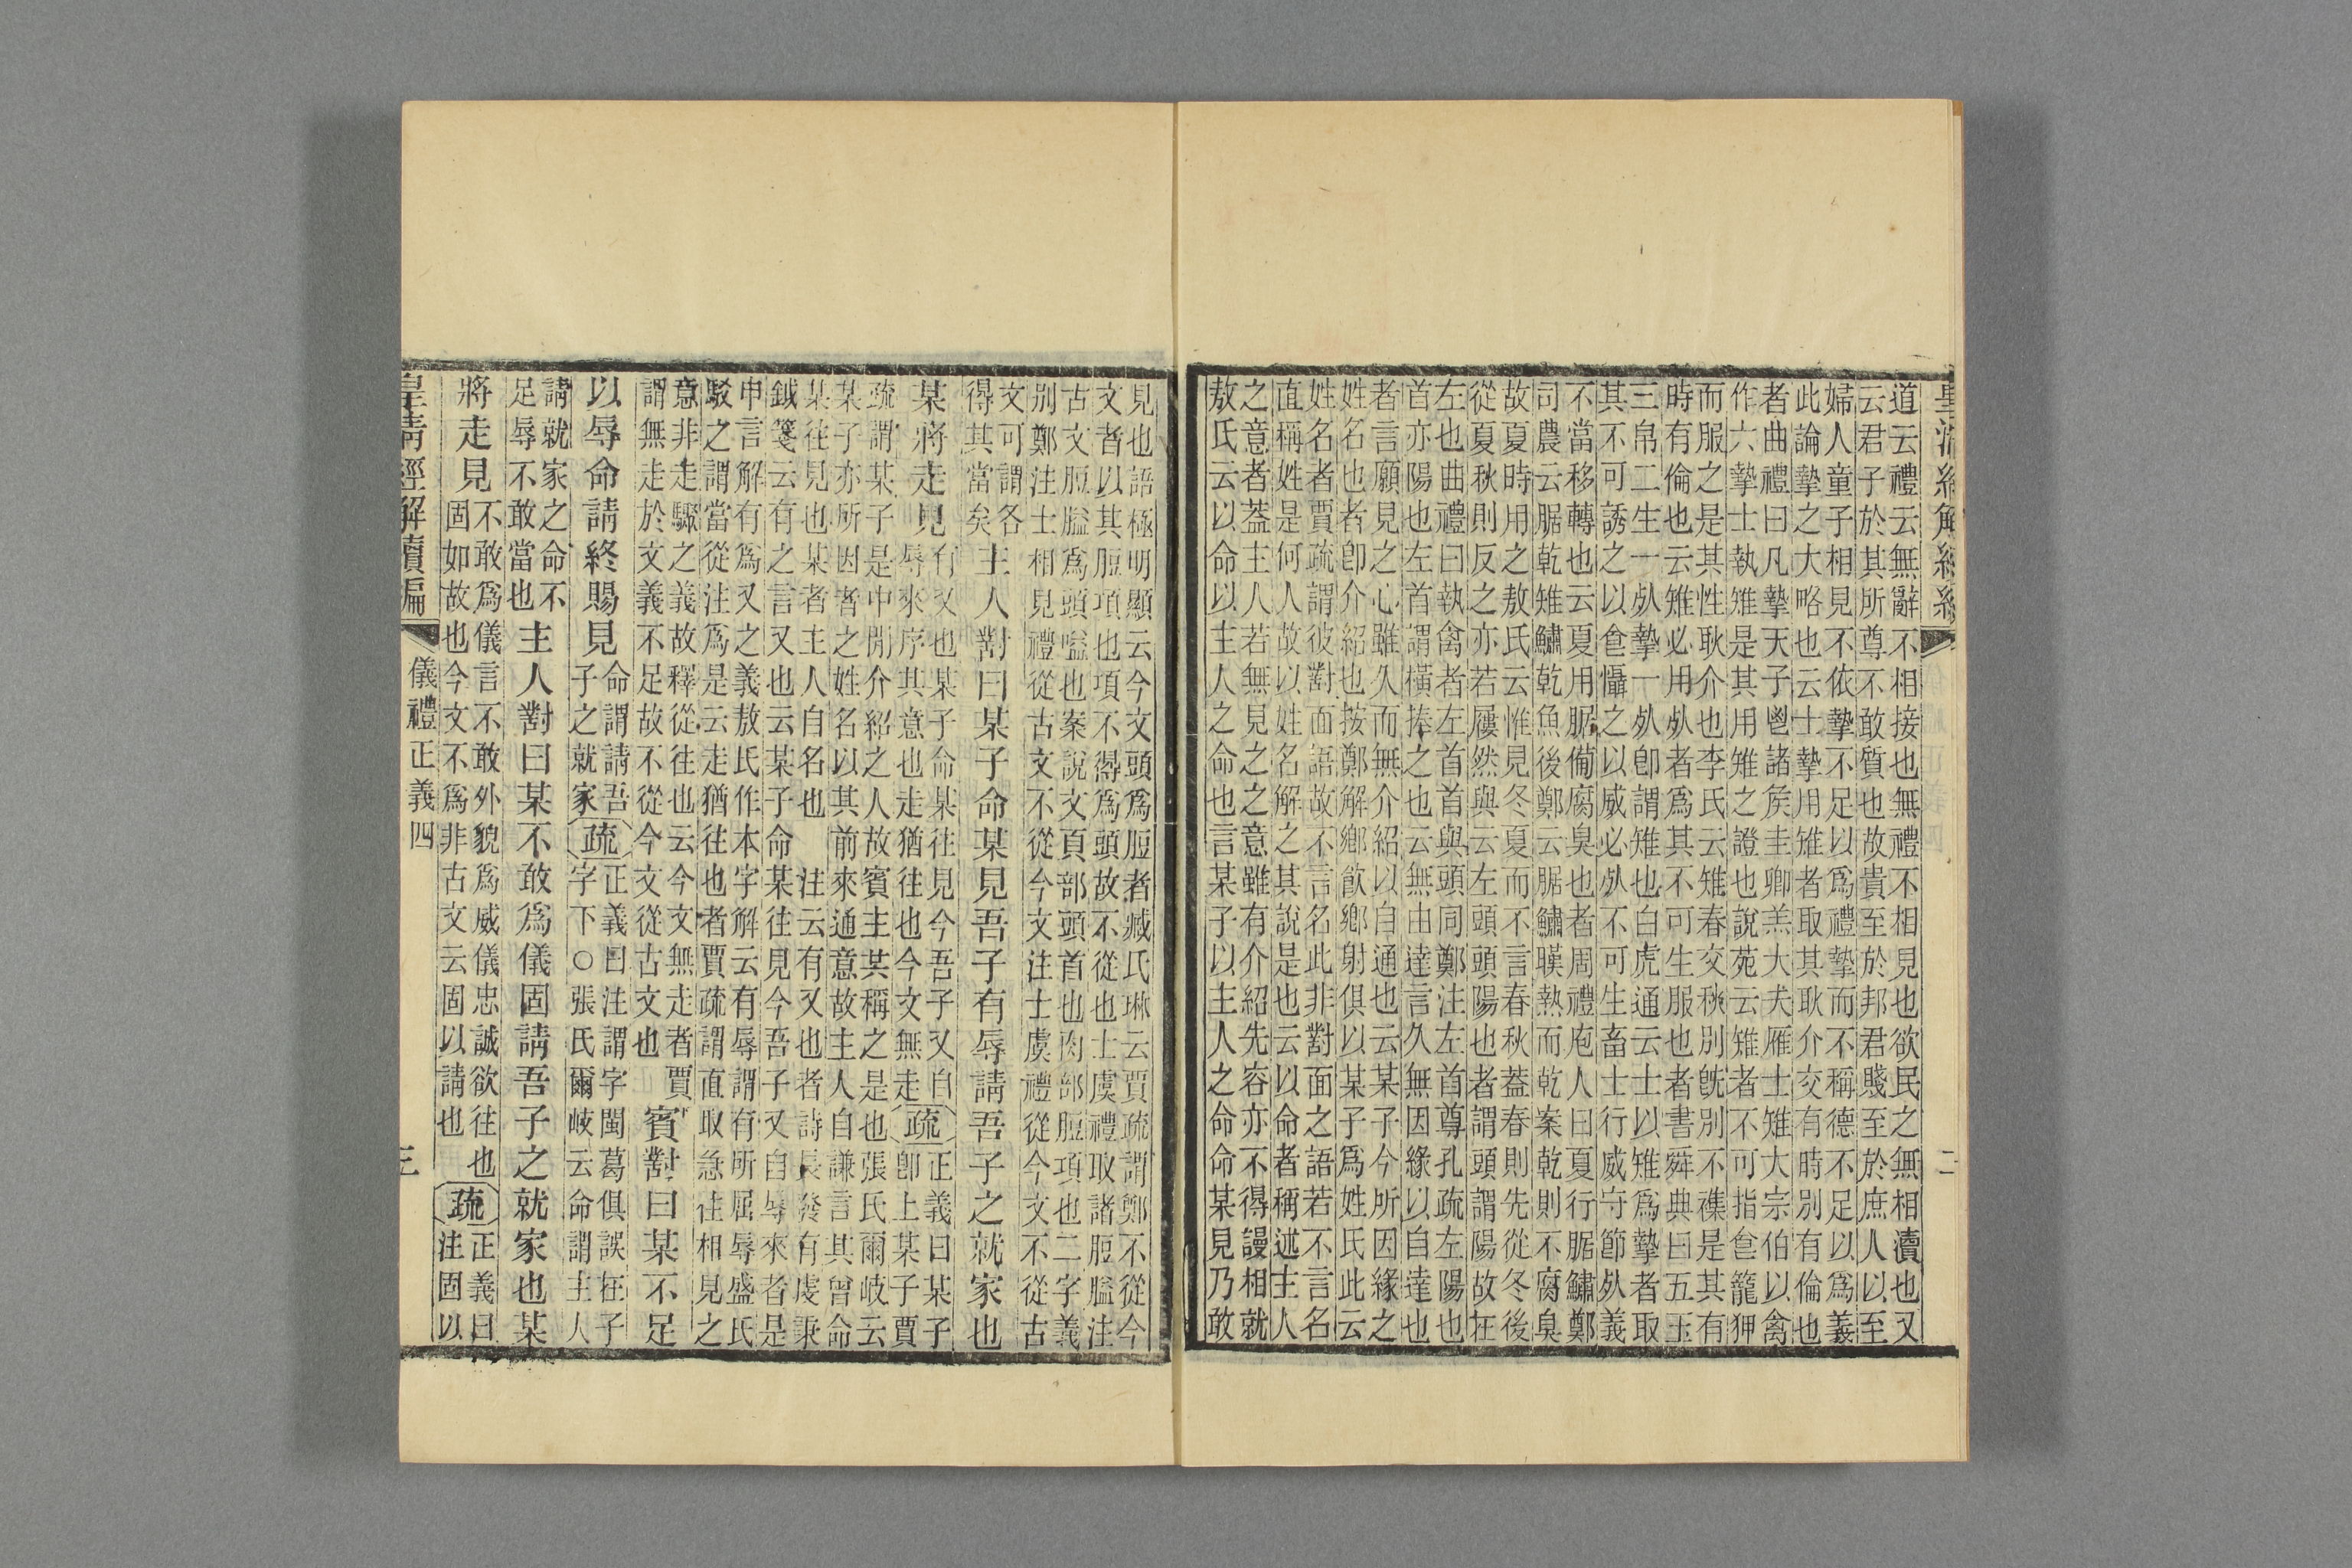 道云禮云無辭不相接也無禮不相見也欲民之無相瀆也又
云君子於其所尊不敢質也故貴至於邦君賤至於庶人以至
婦人童子相見不依摯不足以爲禮摯而不稱德不足以爲義
此論摯之大略也云士摯用雉者取其耿介交有時別有倫也
者曲禮曰凡摯天子鬯諸矦圭卿羔大夫雁士雉大宗伯以禽
作六摯士執雉是其用雉之證也說苑云雉者不可指食籠狎
而服之是其性耿介也李氏云雉春交秋別旣別不襍是其有
時有倫也云雉必用𣦸者爲其不可生服也者書舜典曰五玉
三帛二生一𣦸摯一𣦸卽謂雉也白虎通云士以雉爲摯者取
其不可誘之以食懾之以威必𣦸不可生畜士行威守節𣦸義
不當移轉也云夏用腒備腐臭也者周禮庖人曰夏行腒鱐鄭
司農云腒乾雉鱐乾魚後鄭云腒鱐暵熱而乾案乾則不腐臭
故夏時用之敖氏云惟見冬夏而不言春秋蓋春則先從冬後
從夏秋則反之亦若屨然與云左頭頭陽也者謂頭謂陽故在
左也曲禮曰執禽者左首首與頭同鄭注左首尊孔疏左陽也
首亦陽也左首謂橫捧之也云無由達言久無因緣以自達也
者言願見之心雖久而無介紹以自通也云某子今所因緣之
姓名也者卽介紹也按鄭解鄕飮鄕射俱以某子爲姓氏此云
姓名者賈疏謂彼對面語故不言名此非對面之語若不言名
直稱姓是何人故以姓名解之其說是也云以命者稱述主人
之意者葢主人若無見之之意雖有介紹先容亦不得謾相就
敖氏云以命以主人之命也言某子以主人之命命某見乃敢
見也語極明顯云今文頭爲脰者臧氏琳云賈疏謂鄭不從今
文者以其脰項也項不得爲頭故不從也士虞禮取諸脰膉注
古文脰膉爲頭嗌也案說文頁部頭首也肉部脰項也二字義
別鄭注士相見禮從古文不從今文注士虞禮從今文不從古
文可謂各
得其當矣
主人對曰某子命某見吾子有辱請吾子之就家也
某將走見
有又也某子命某往見今吾子又自
辱來序其意也走猶往也今文無走
疏
正義曰某子
卽上某子賈
疏謂某子是中閒介紹之人故賓主共稱之是也張氏爾岐云
某子亦所因者之姓名以其前來通意故主人自謙言其曾命
某往見也某者主人自名也　注云有又也者詩長發有虔秉
鉞箋云有之言又也云某子命某往見今吾子又自辱來者是
申言解有爲又之義敖氏作本字解云有辱謂有所屈辱盛氏
駁之謂當從注爲是云走猶往也者賈疏謂直取急往相見之
意非走驟之義故釋從往也云今文無走者賈
謂無走於文義不足故不從今文從古文也
賓對曰某不足
以辱命請終賜見
命謂請吾
子之就家
疏
正義曰注謂字閩葛俱誤在子
字下○張氏爾岐云命謂主人
請就家之命不
足辱不敢當也
主人對曰某不敢爲儀固請吾子之就家也某
將走見
不敢爲儀言不敢外貌爲威儀忠誠欲往也
固如故也今文不爲非古文云固以請也
疏
正義曰
注固以
皇淸經解續編
儀禮正義四
三